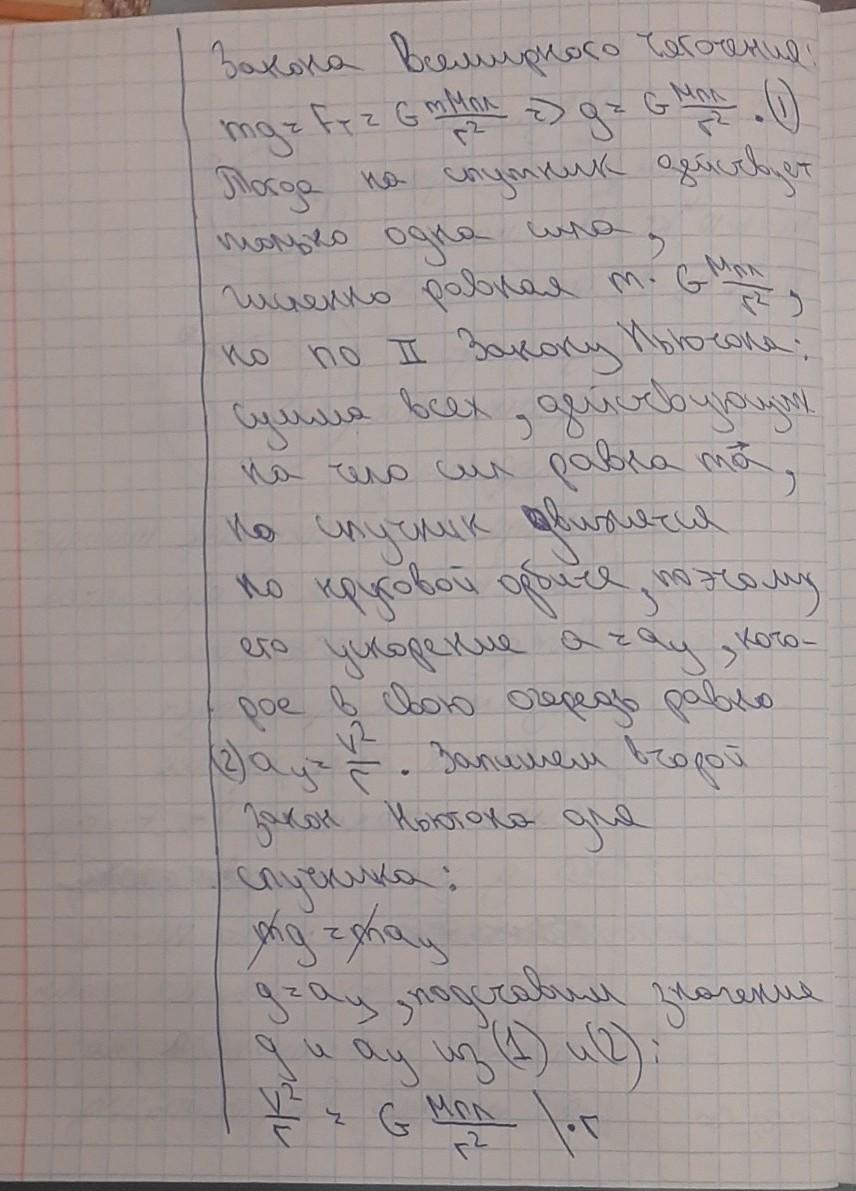 Закона Всемирного тяготения:
mg = Fт = G mMпл/r² => g = G Mпл/r². (1)
Тогда на спутник действует
только одна сила,
численно равная m · G Mпл/r²,
но по II Закону Ньютона:
сумма всех, действующих
на тело сил равна ma⃗,
но спутник движется
по круговой орбите, поэтому
его ускорение a = aу, кото-
рое в свою очередь равно
(2) aу = V²/r. Запишем второй
закон Ньютона для
спутника:
mg = maу
g = aу, подставим значения
g и aу из (1) и (2):
V²/r = G Mпл/r² | · r